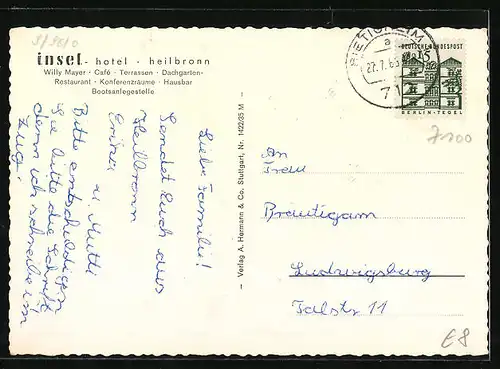 insel - hotel - heilbronn
Willy Mayer · Café · Terrassen · Dachgarten-
Restaurant · Konferenzräume · Hausbar
Bootsanlegestelle
Liebe Familie!
Sendet Euch aus
Heilbronn
Erika
u. Mutti
Bitte entschuldigen
Sie bitte die Schrift
denn ich schreibe im
Zug.
— Verlag A. Hermann & Co. Stuttgart, Nr. 1422/25 M —
BIETIGHEIM
a
27.7.65
712
DEUTSCHE BUNDESPOST
15
BERLIN-TEGEL
7100
An
Frau
Bräutigam
Ludwigsburg
Talstr 11
E8